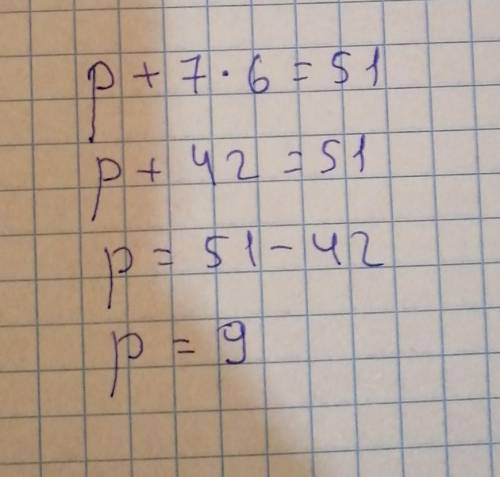 p + 7 · 6 = 51
p + 42 = 51
p = 51 - 42
p = 9